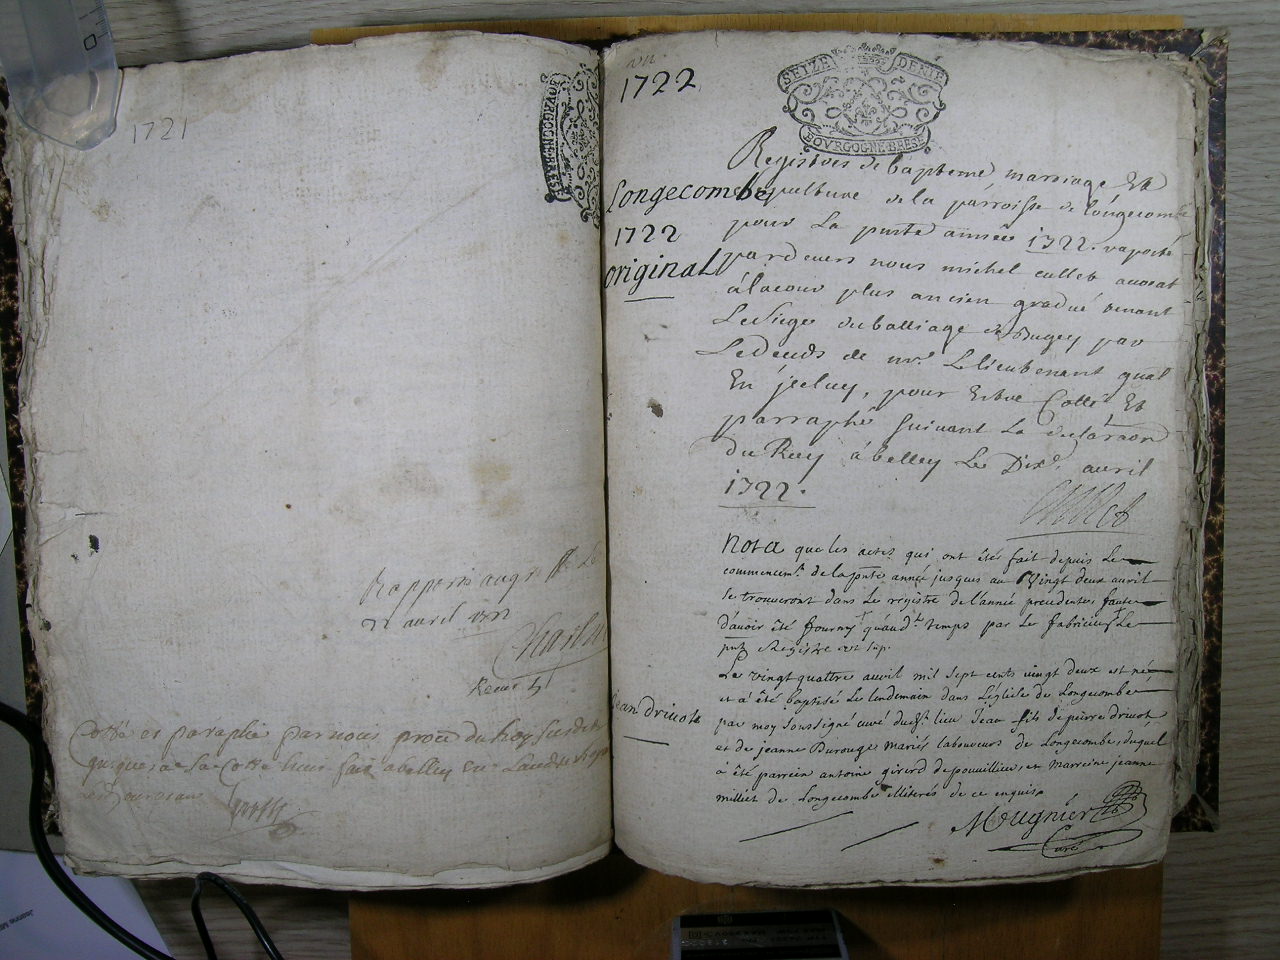 1721
BOVRGOGNE·BRESSE
Rapporté au gr
22 avril 1722
Recu 5
Cotté et paraphé par nous du Roy susdit
jusques a la Cotte huit fait a belley en
1722
SEIZE DENIE
BOVRGOGNE·BRESSE
Longecombe
1722
original
Registres de bapteme marriage Et
sepulture de la parroisse de longecombe
pour La pnte année 1722. raporté
pardevers nous michel cullet avocat
à la cour plus ancien gradué tenant
Le Siege du balliage de Bugey par
Le Deceds de mr. Le lieutenant gnal
En jceluy, pour Estre Cotté Et
parraphé suivant La declaraon
du Roy à belley Le Dixe. avril
1722.
Cullet
Nota que les actes qui ont été fait depuis Le
commencemt. de la pnte année jusques au Vingt deux avril
se trouveront dans Le registre de l'année precedentes faute
d'avoir été fourny quand. temps par Le fabricieur Le
pnt Registre
Jean drivot
Le vingt quattre avril mil sept cents vingt deux est né
et a été baptisé Le lendemain dans L'église de Longecombe
par moy soussigné curé dudt lieu Jean fils de pierre drivot
et de jeanne Burouge mariés laboureurs de Longecombe, duquel
a été parrein antoine girerd de pouvillieu, et marreine jeanne
milliet de Longecombe illiterés de ce enquis
Mugnier
Curé